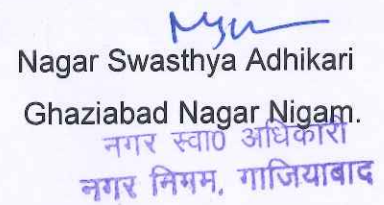 Nagar Swasthya Adhikari
Ghaziabad Nagar Nigam.
नगर स्वा0 अधिकारी
नगर निगम, गाजियाबाद